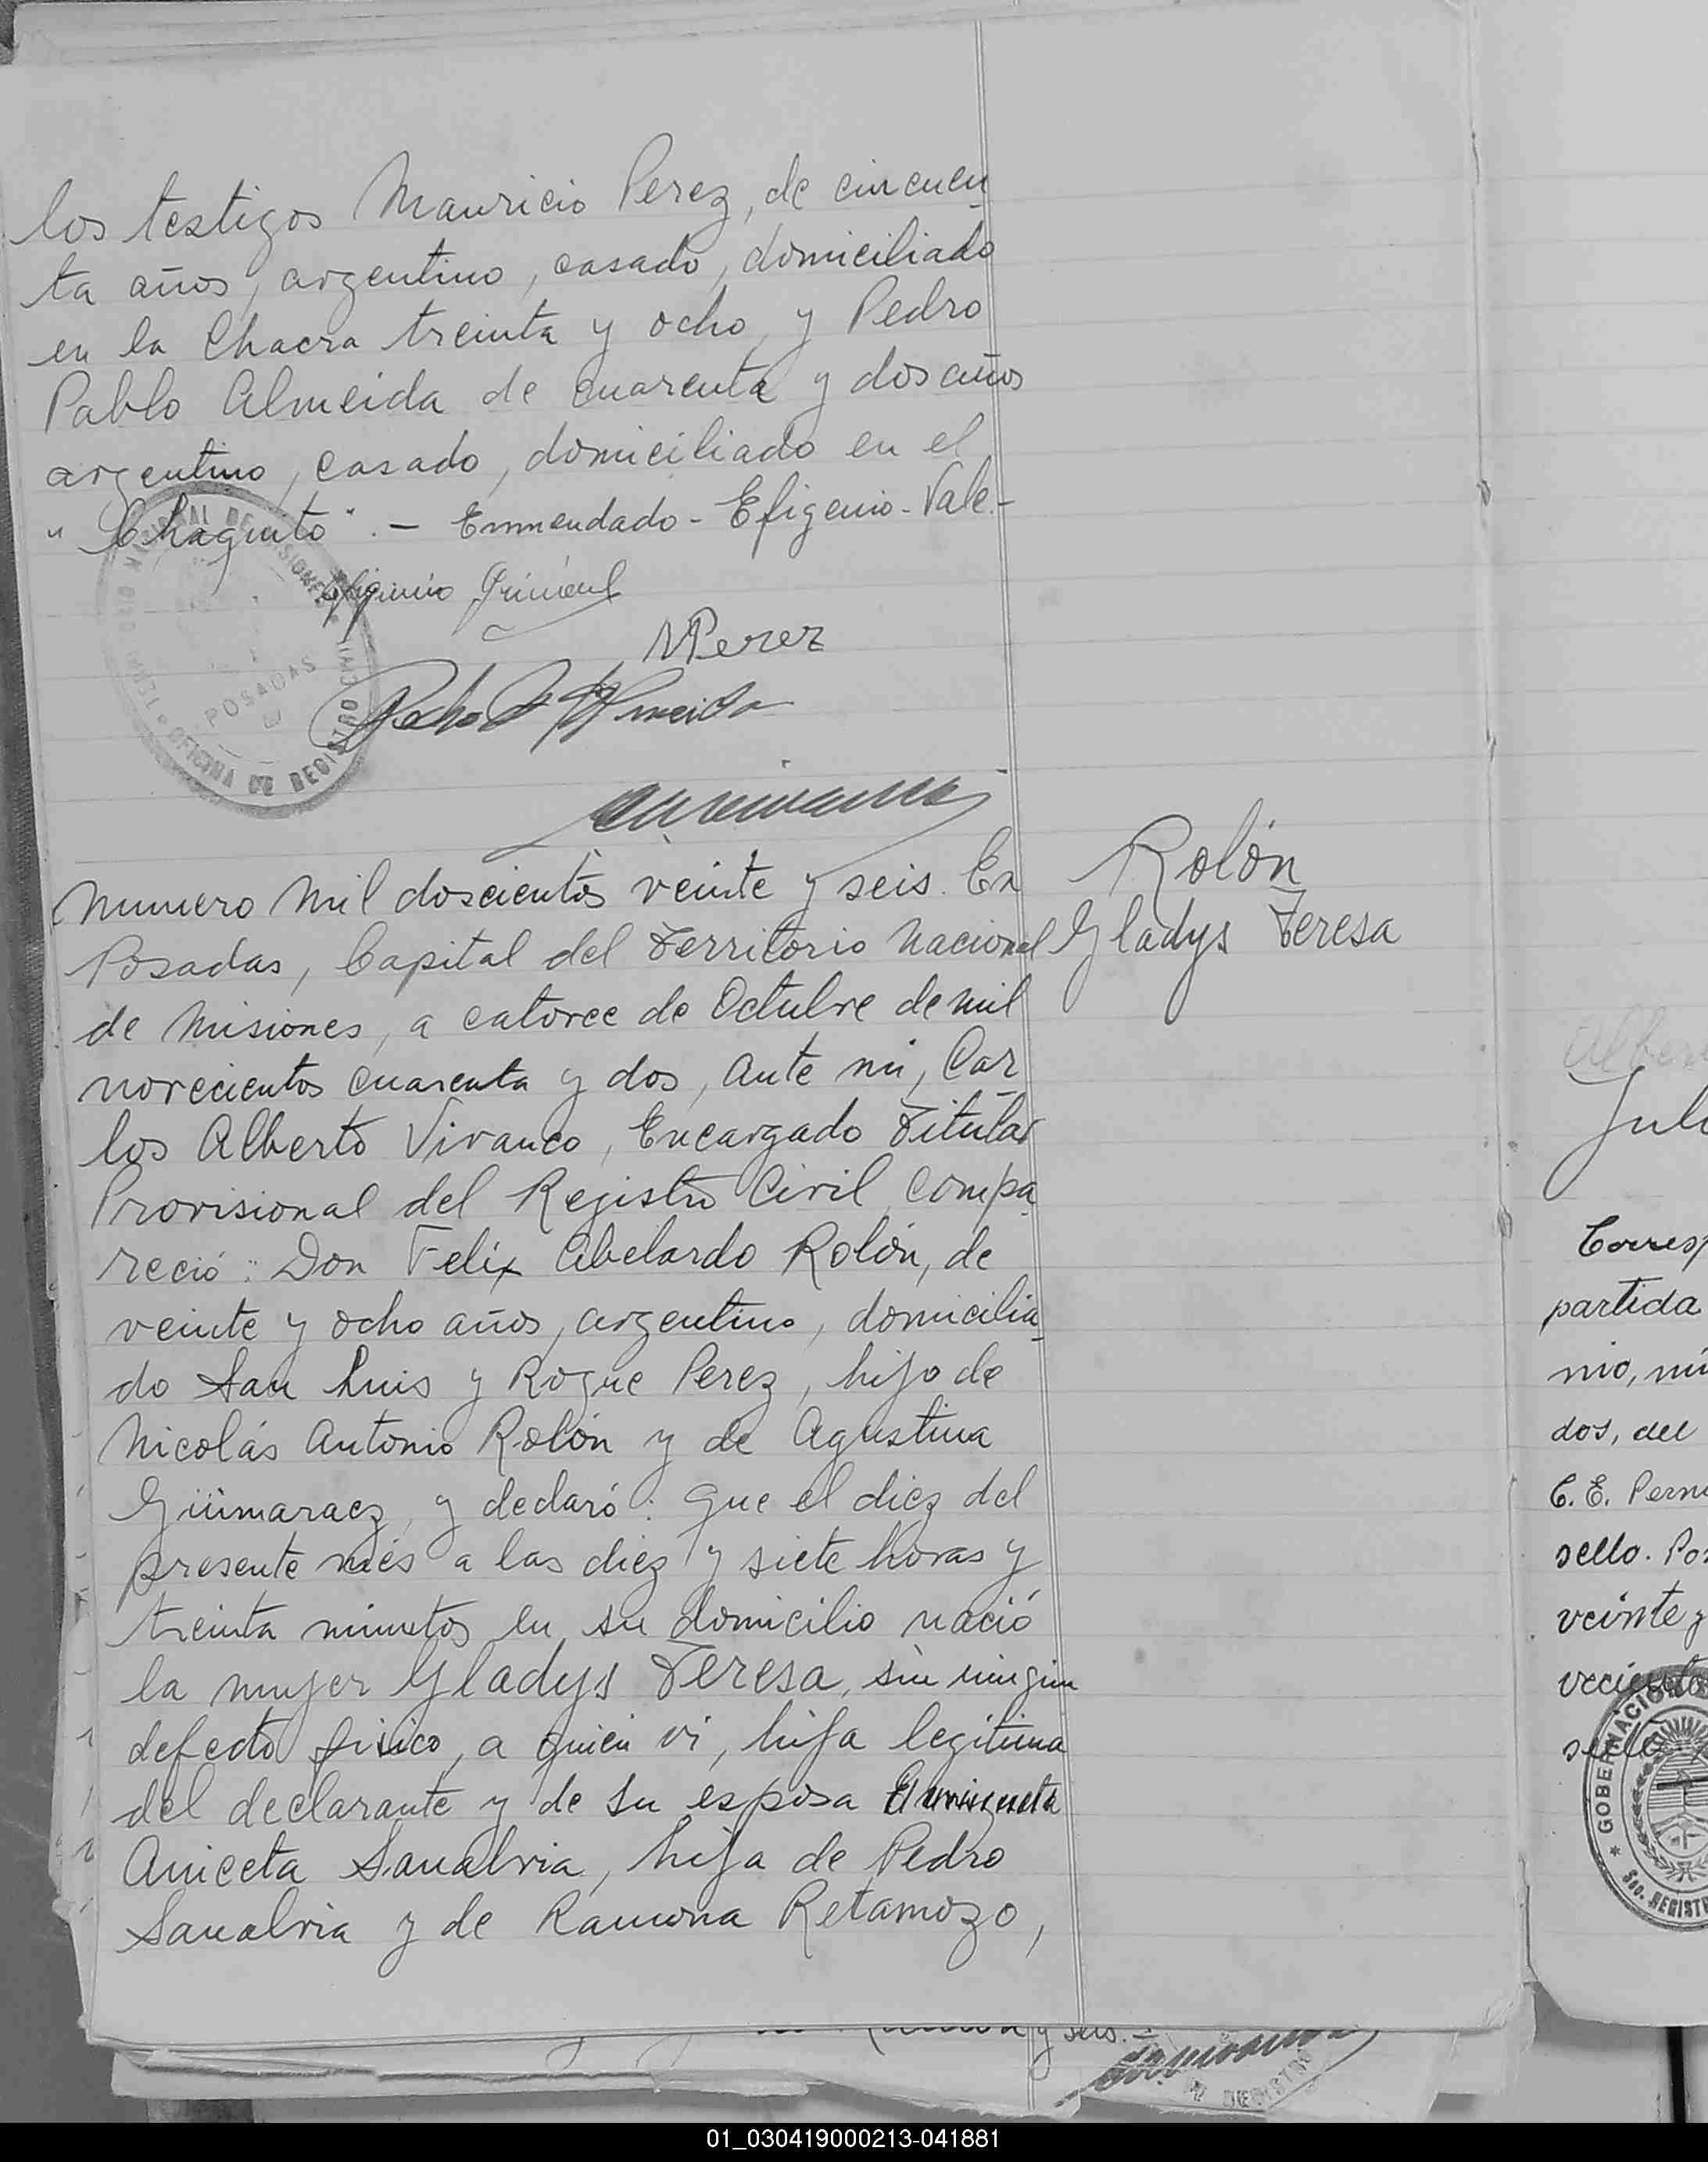 los testigos Mauricio Perez, de cincuen
ta años, argentino, casado, domiciliado
en la Chacra treinta y ocho y Pedro
Pablo Almeida de cuarenta y dos años
argentino, casado, domiciliado en el
"Chaquito". - Enmendado - Efigenio - Vale. -
Efigenio
MPerez
Pedro P Almeida
OFICINA DE REGISTRO CIVIL
POSADAS
Numero mil doscientos veinte y seis. En
Posadas, Capital del Territorio Nacional
de Misiones, a catorce de Octubre de mil
novecientos cuarenta y dos, ante mi, Car
los Alberto Vivanco, Encargado Titular
Provisional del Registro Civil compa
reció: Don Felix Abelardo Rolón, de
veinte y ocho años, argentino, domicilia
do San Luis y Roque Perez, hijo de
Nicolás Antonio Rolón y de Agustina
Güimaraez, y declaró: que el diez del
presente més a las diez y siete horas y
treinta minutos en su domicilio nació
la mujer Gladys Teresa, sin ningun
defecto fisico, a quien vi, hija legitima
del declarante y de su esposa
Aniceta Sanabria, hija de Pedro
Sanabria y de Ramona Retamozo,
Rolón
Gladys Teresa
Corresp
partida
nio, nú
dos, del
C. E. Pern
sello. Pos
veinte y
veciento
siete
GOBERNACION
Sec. REGIST
y seis. -
01_030419000213-041881